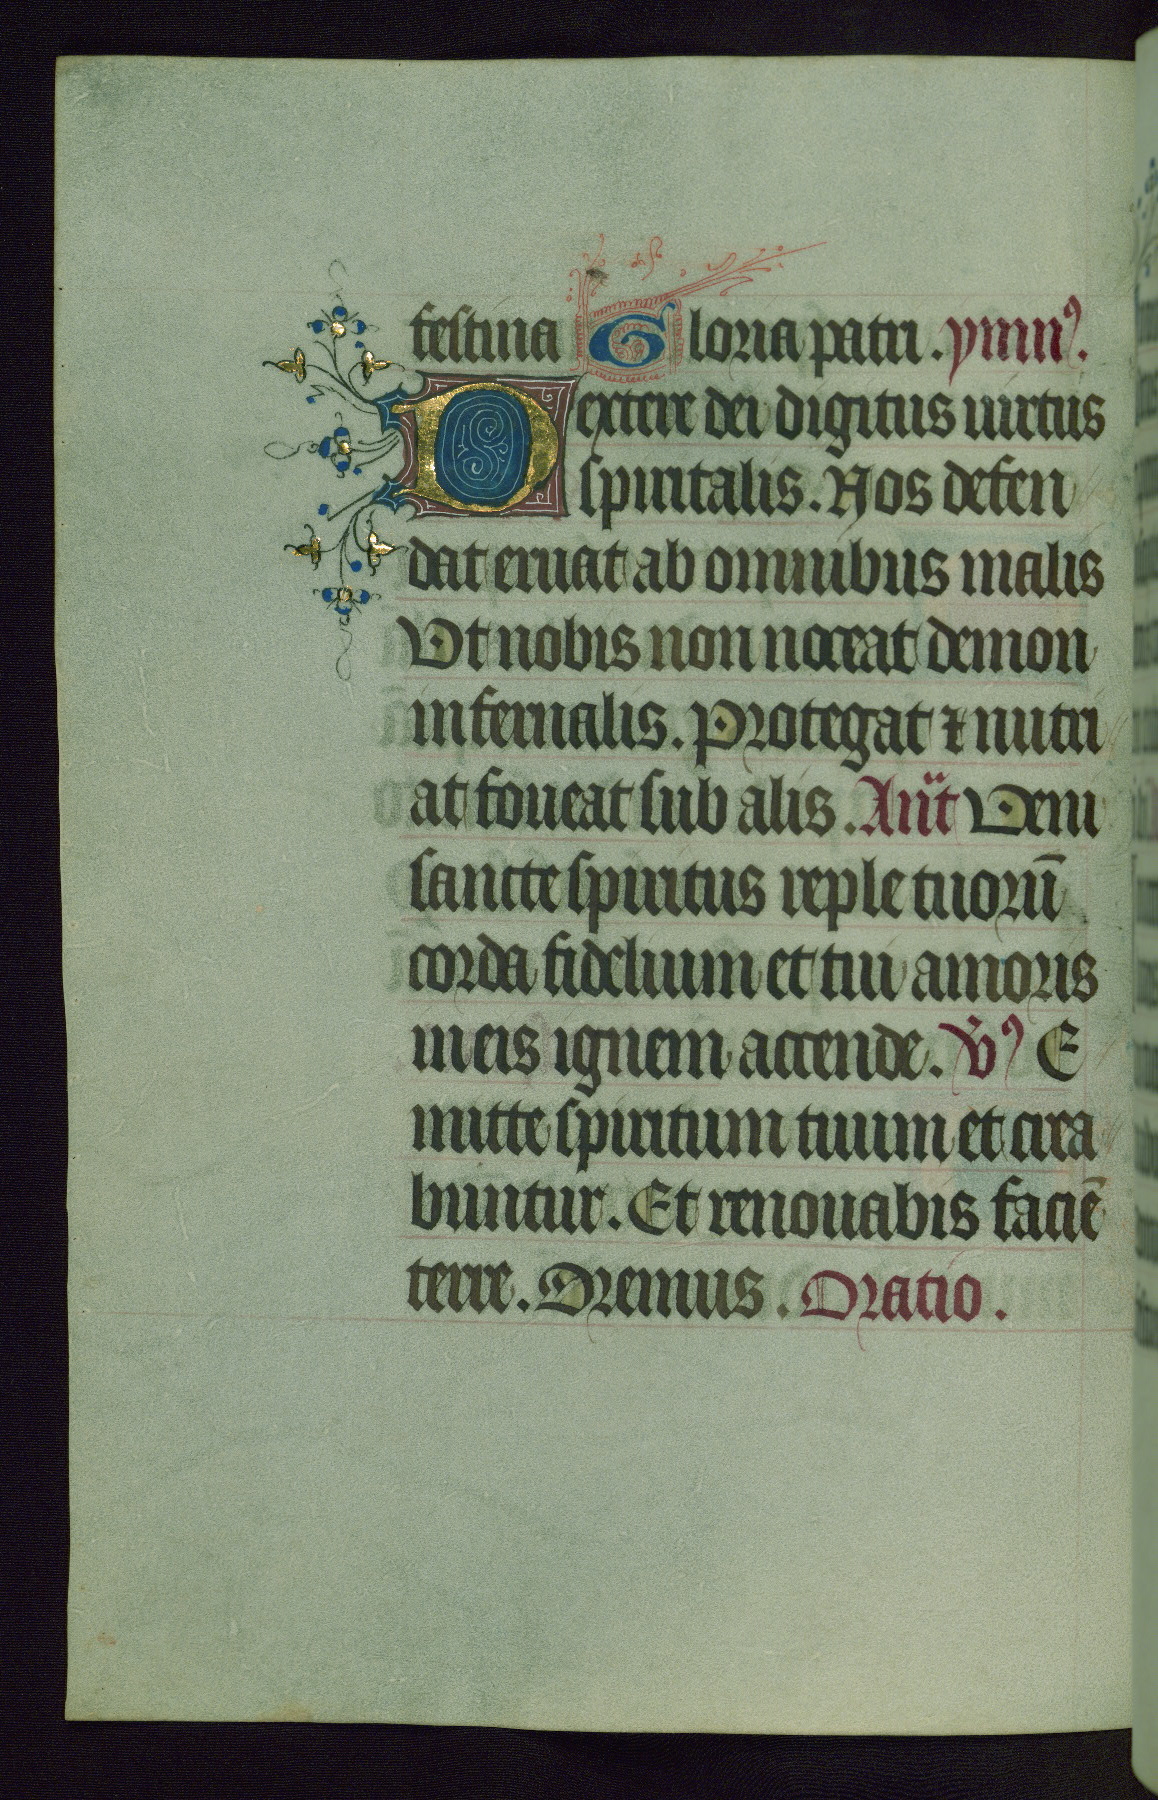 festina Gloria patri. ymnꝰ.
Dextere dei digitus uirtus
spiritalis. Nos defen
dat eruat ab omnibus malis
Vt nobis non noceat demon
infernalis. Protegat ⁊ nutri
at foueat sub alis. Añt Veni
sancte spiritus reple tuorū
corda fidelium et tui amoris
in eis ignem accende. V̄ꝰ E
mitte spiritum tuum et crea
buntur. Et renouabis faciē
terre. Oremus. Oratio.